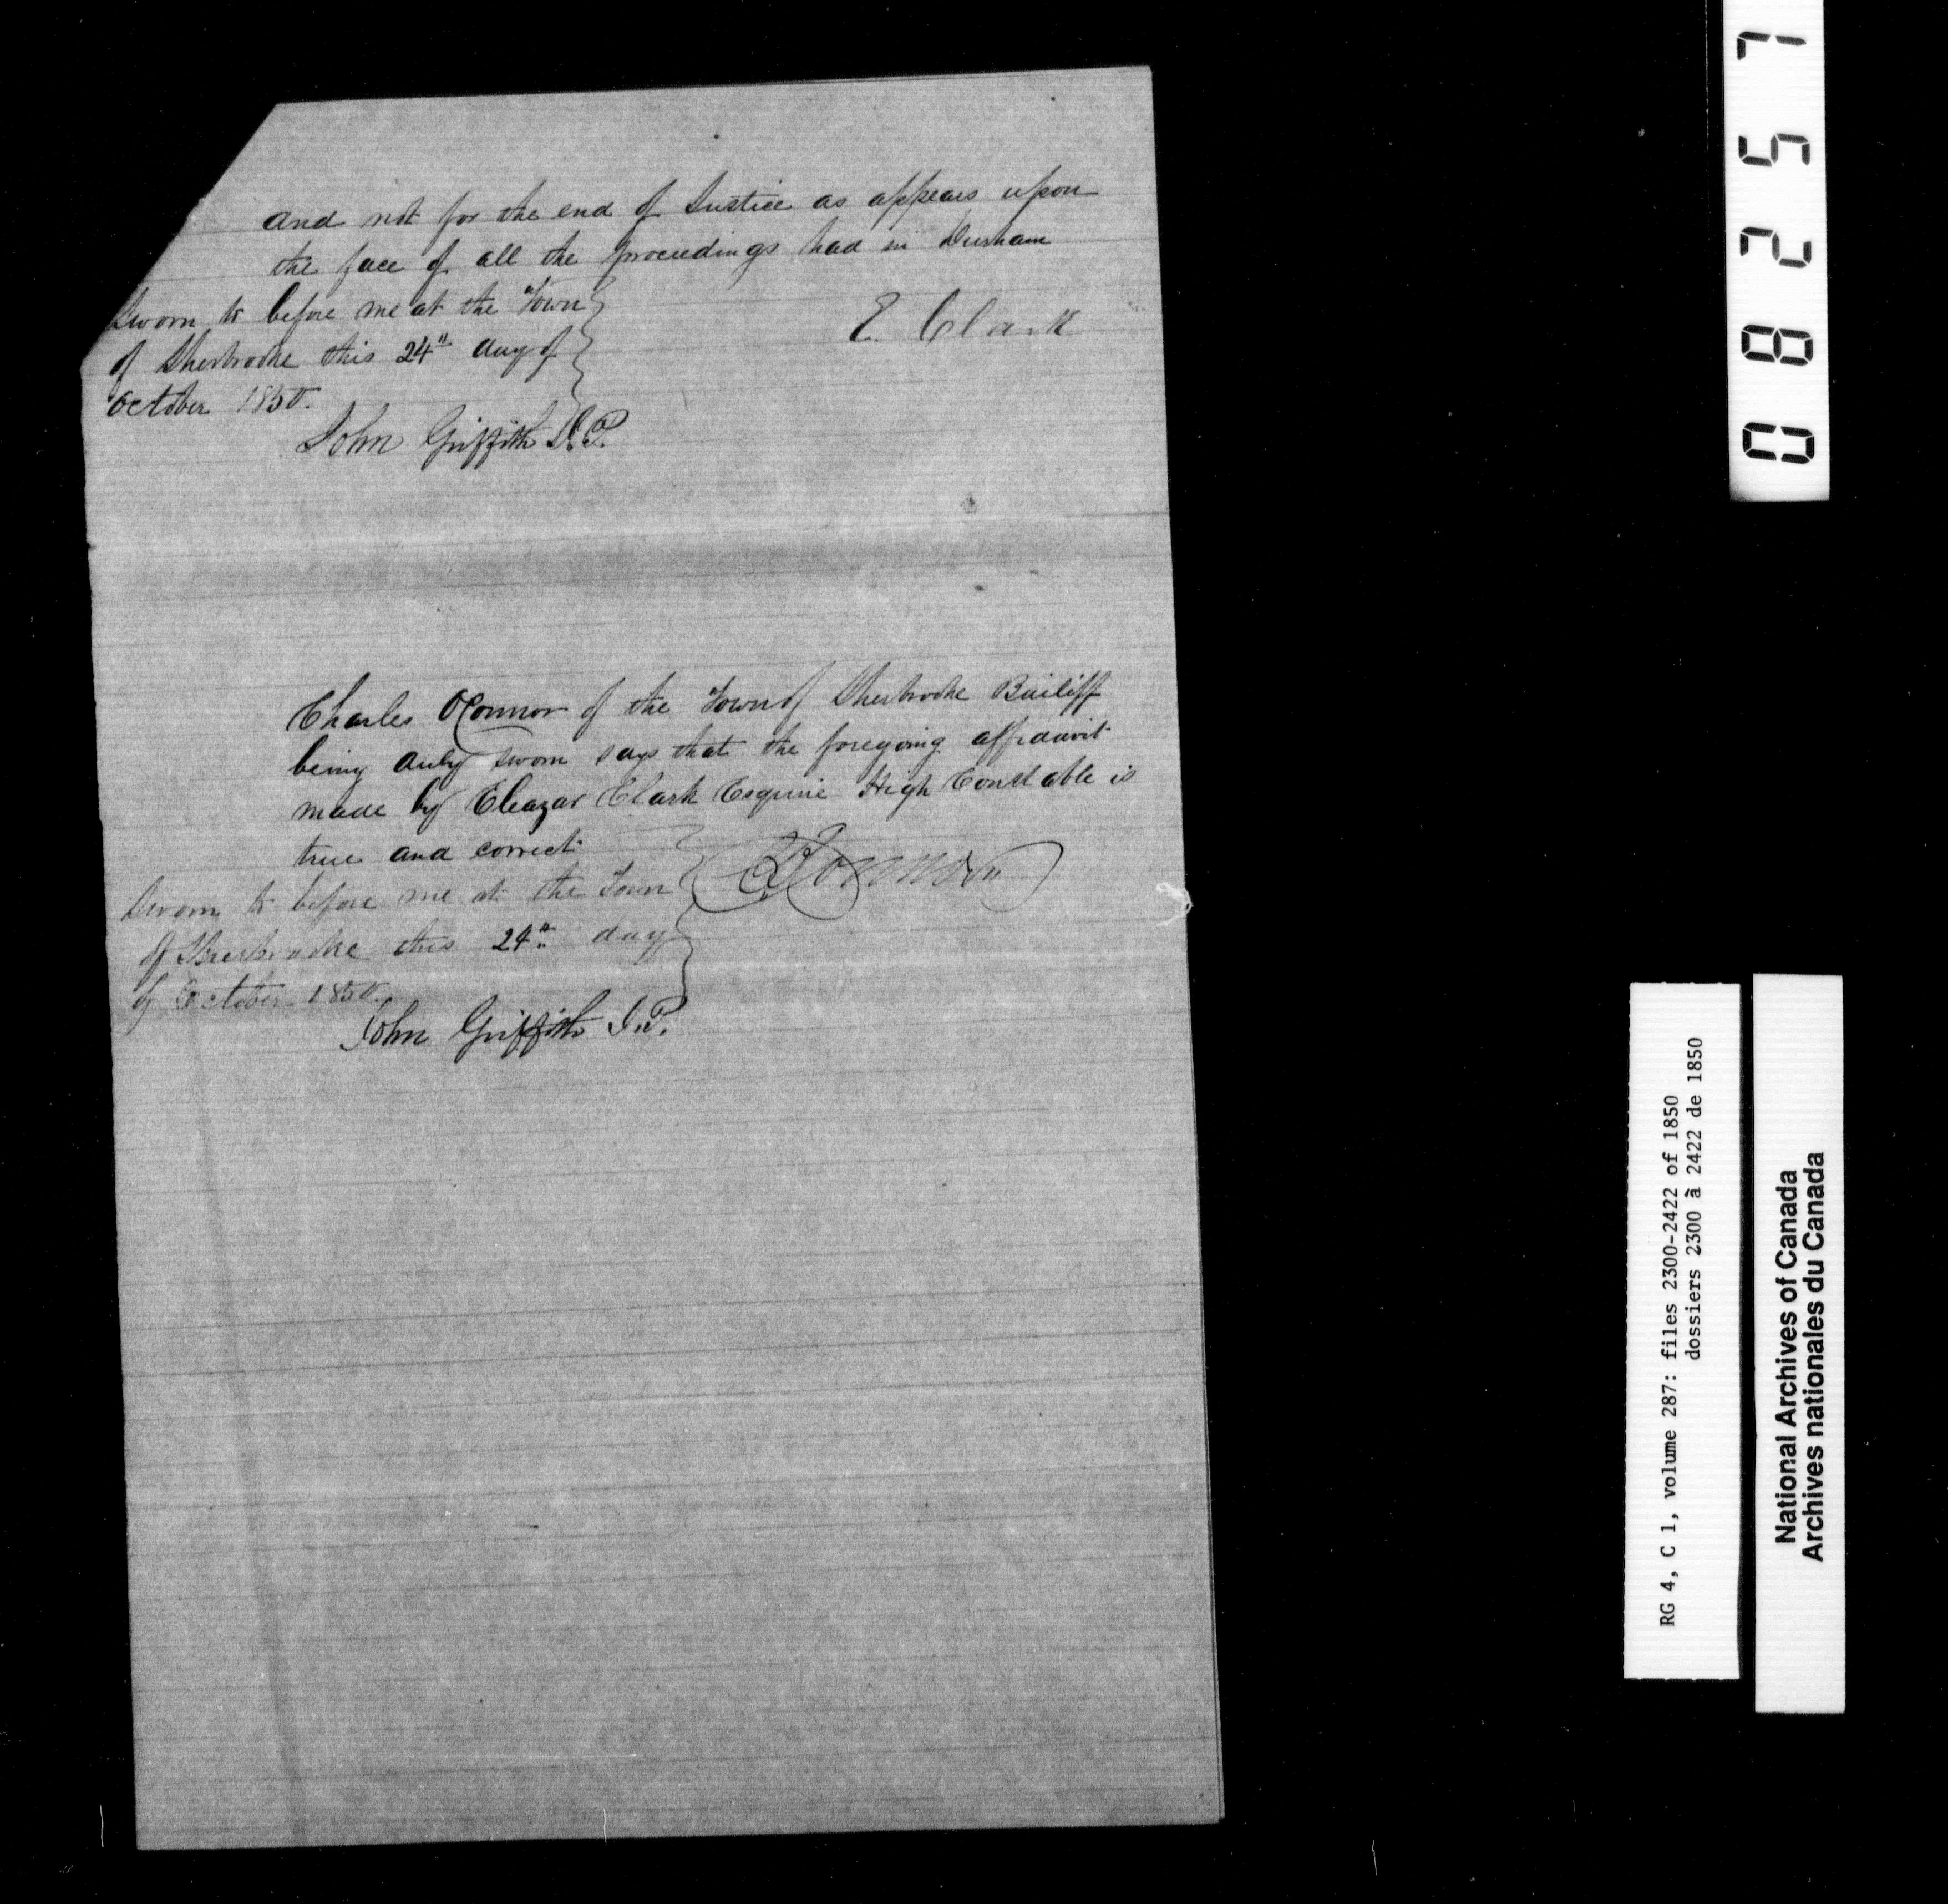 and not for the end of Justice as appears upon
the face of all the proceedings had in Durham
Sworn to before me at the Town
of Sherbrooke this 24th day of
October 1850.
E. Clark
John Griffith J.P.
Charles OConnor of the Town of Sherbrooke Bailiff
being duly sworn says that the foregoing affidavit
made by Eleazar Clark Esquire High Constable is
true and correct
COConnor
Sworn to before me at the Town
of Sherbrooke this 24th day
of October 1850.
John Griffith J.P.
08257
RG 4, C 1, volume 287: files 2300-2422 of 1850
dossiers 2300 à 2422 de 1850
National Archives of Canada
Archives nationales du Canada